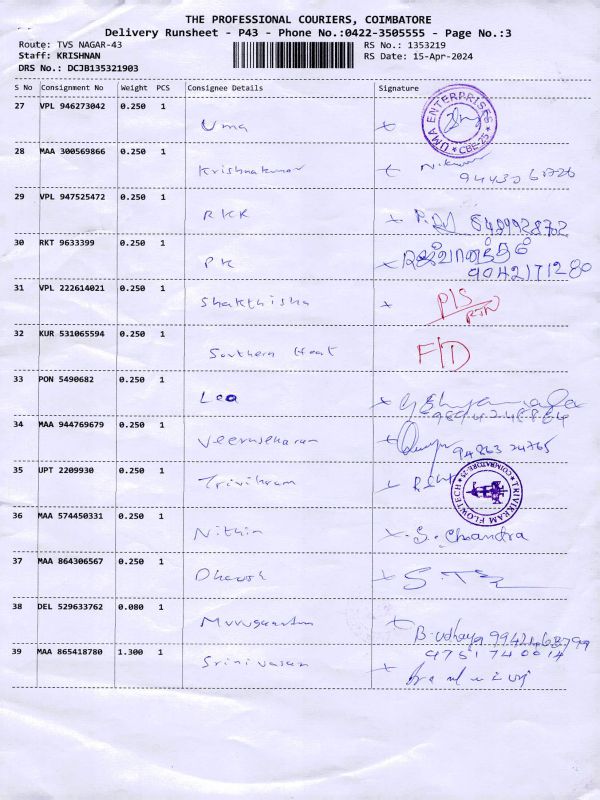 THE PROFESSIONAL COURIERS, COIMBATORE
Delivery Runsheet - P43 - Phone No.:0422-3505555 - Page No.:3
Route: TVS NAGAR-43 RS No.: 1353219
Staff: KRISHNAN RS Date: 15-Apr-2024
DRS No.: DCJB135321903
S No Consignment No Weight PCS Consignee Details Signature
27 VPL 946273042 0.250 1
Uma UMA ENTERPRISES * CBE-25 *
28 MAA 300569866 0.250 1
Krishnakumar
29 VPL 947525472 0.250 1
RKR 8489928702
30 RKT 9633399 0.250 1
PK 9042171280
31 VPL 222614021 0.250 1
Shakthisha P/S
32 KUR 531065594 0.250 1
Southern Heat F/D
33 PON 5490682 0.250 1
Lea
34 MAA 944769679 0.250 1
94863 24765
35 UPT 2209930 0.250 1
Trivikram TRIVIKRAM FLOWTECH * COIMBATORE-25 *
36 MAA 574450331 0.250 1
Nithin S. Chandra
37 MAA 864306567 0.250 1
38 DEL 529633762 0.080 1
B. Udhaya 9942168799
39 MAA 865418780 1.300 1 9751740014
Srinivasan